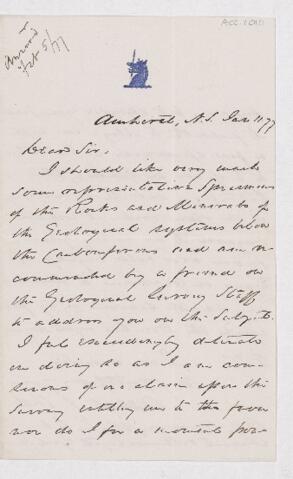 Answered
Feb 5/77
Acc. 1001
Amherst, N.S. Jan 11 77
Dear Sir,
I should like very much
some representative Specimens
of the Rocks and Minerals of
the Geological systems below
the Carboniferous and am re-
commended by a friend on
the Geological Survey Staff
to address you on this subject.
I feel exceedingly delicate
in doing so as I am con-
scious of no claim upon the
Survey entitling me to this favor
nor do I for a moment pre-